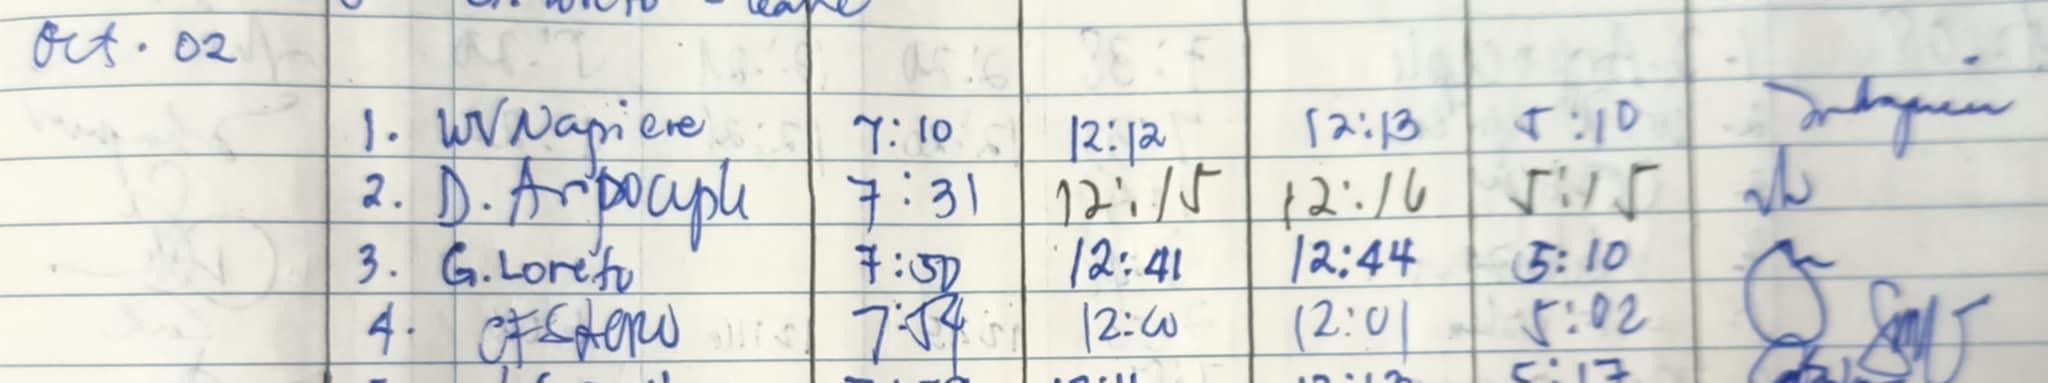 Oct. 02
1. WV Napiere 7:10 12:12 12:13 5:10
2. D. 7:31 12:15 12:16 5:15
3. G. Loreto 7:50 12:41 12:44 5:10
4. 7:54 12:00 12:01 5:02
5:17